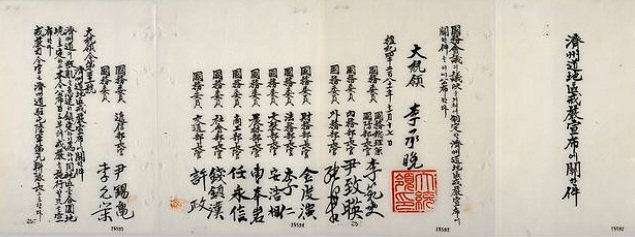 濟州道地區戒嚴宣布에關한件
國務會議의議決을거쳐서制定한濟州道地區戒嚴宣布에
關한件을이에公布한다
大統領 李承晩
大統領印
檀紀四千二百八十一年十一月十七日
國務委員 國務總理兼
國防部長官 李範奭
國務委員 內務部長官 尹致暎
國務委員 外務部長官
國務委員 財務部長官 金度演
國務委員 法務部長官 李仁
國務委員 文敎部長官 安浩相
國務委員 農林部長官 曺奉岩
國務委員 商工部長官 任永信
國務委員 社會部長官 錢鎭漢
國務委員 交通部長官 許政
國務委員 遞信部長官 尹錫龜
國務委員 李允榮
大統領令第三十一號
濟州道地區戒嚴宣布에關한件
濟州道의叛亂을急速히鎭定하기爲하여同地區를合圍地
境으로定하고本令公布日로부터戒嚴을施行할것을宣
布한다
戒嚴司令官은濟州道駐屯陸軍第九聯隊長으로한다